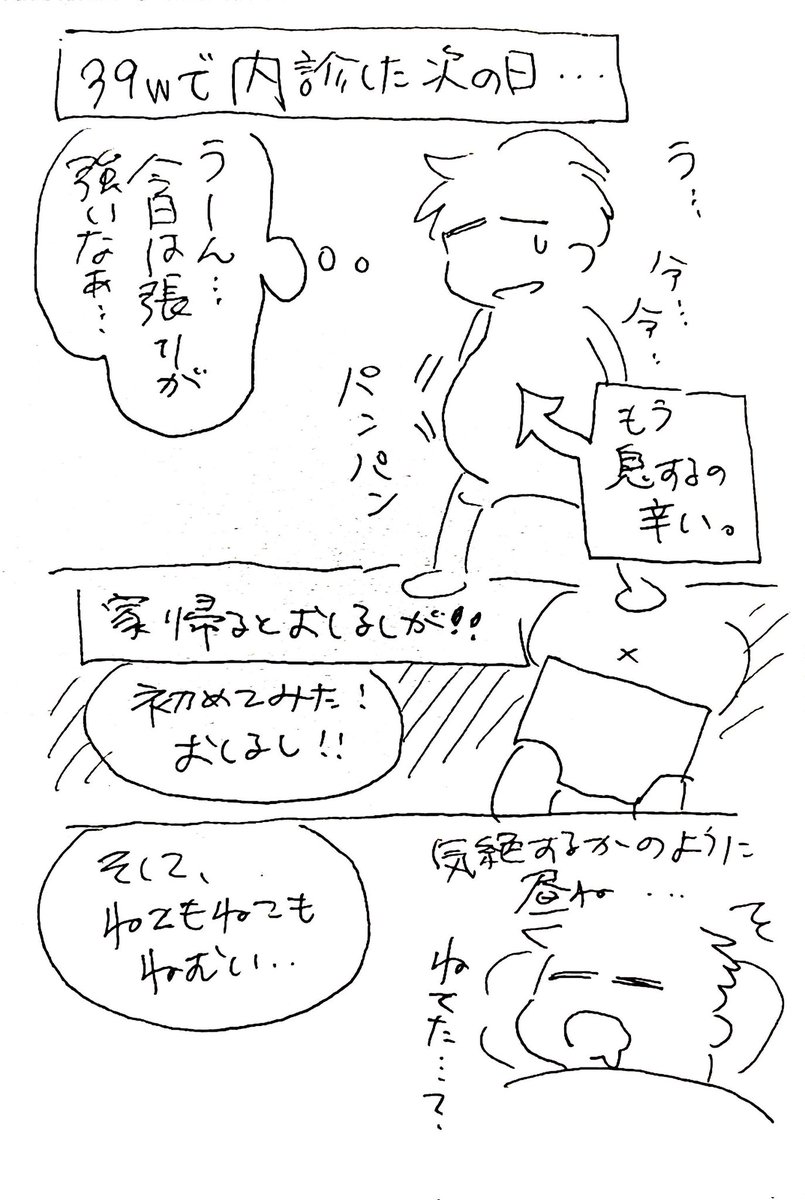 39wで内診した次の日…
う…
今…
今…
うーん…
今日は張りが
強いなぁ…
パンパン
もう
息するの
辛い。
家帰るとおしるしが!!
初めてみた!
おしるし!!
気絶するかのように
昼ね…
そして、
ねてもねても
ねむい…
ねてた…?